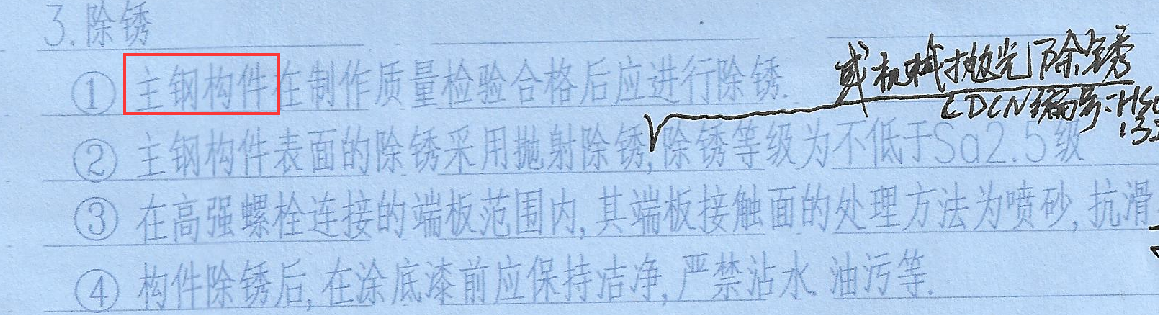 3.除锈
①主钢构件在制作质量检验合格后应进行除锈.
或机械抛光除锈
②主钢构件表面的除锈采用抛射除锈,除锈等级为不低于Sa2.5级
③在高强螺栓连接的端板范围内,其端板接触面的处理方法为喷砂,抗滑
④构件除锈后,在涂底漆前应保持洁净,严禁沾水.油污等.